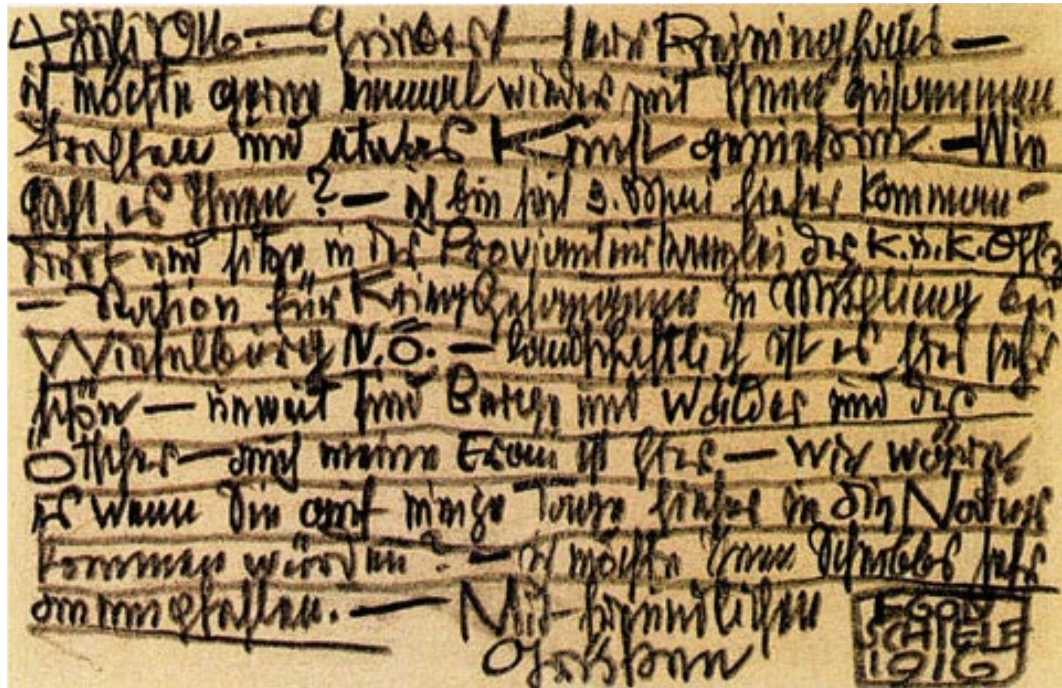 4. Juli 916. — Grinser Herr Reininghaus —
ich möchte gerne einmal wieder mit Ihnen zusammen
treffen und etwas Kunst genießen. — Wie
geht es Ihnen? — ich bin seit 3. Mai hieher komman-
diert und sitze in der Provianturkanzlei der K.u.K. Offs
— Station für Kriegsgefangene in Mühling bei
Wieselburg N.Ö. — landschaftlich ist es hier sehr
schön — unweit sind Berge und Wälder und der
Ötscher — auch meine Frau ist hier — Wie wäre
es wenn Sie auf einige Tage hieher in die Natur
kommen würden? — ich möchte Ihnen sehr
anempfehlen. — Mit freundlichen
Grüßen
EGON
SCHIELE
1916